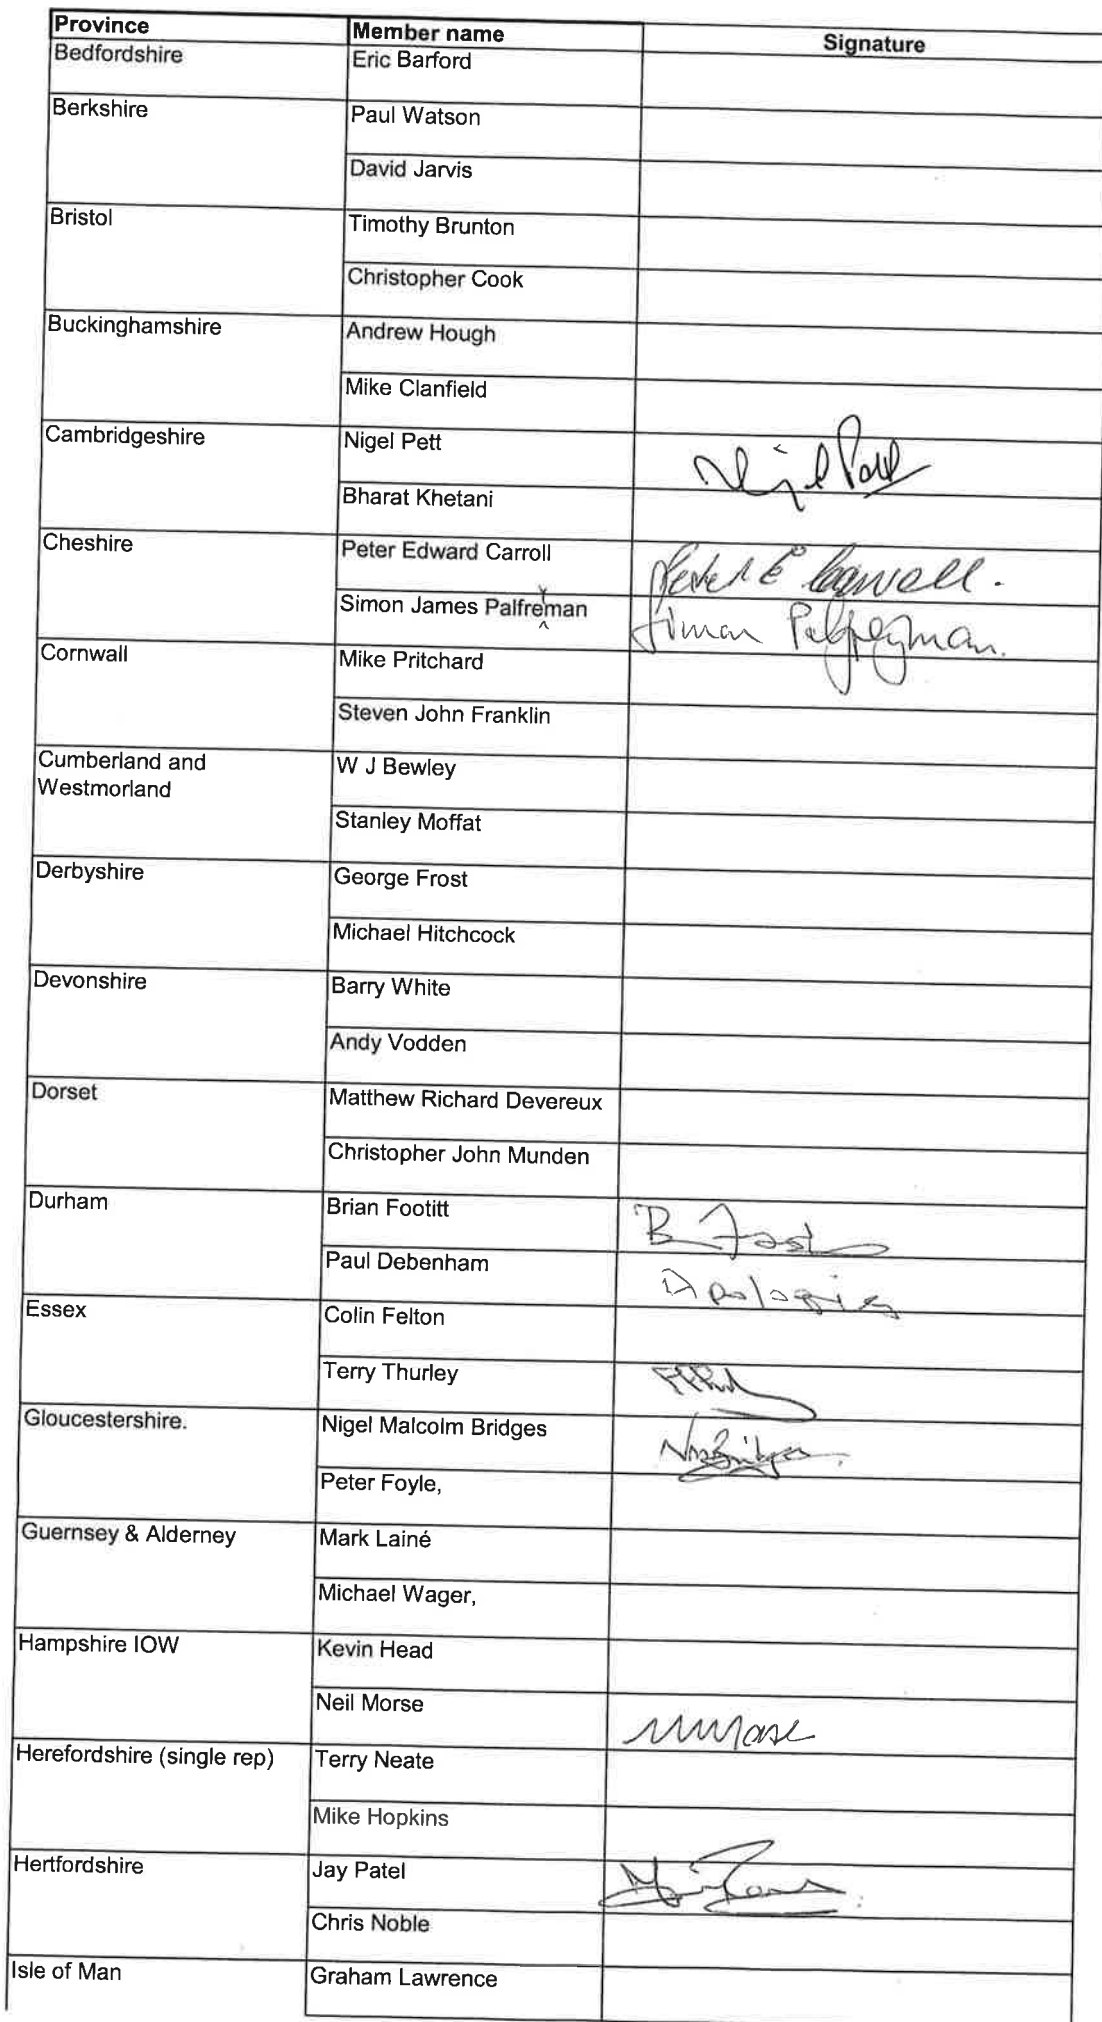 Province Member name Signature
Bedfordshire Eric Barford
Berkshire Paul Watson
David Jarvis
Bristol Timothy Brunton
Christopher Cook
Buckinghamshire Andrew Hough
Mike Clanfield
Cambridgeshire Nigel Pett Nigel Pett
Bharat Khetani
Cheshire Peter Edward Carroll Peter E Carroll.
y
Simon James Palfreman Simon Palfreyman.
^
Cornwall Mike Pritchard
Steven John Franklin
Cumberland and W J Bewley
Westmorland
Stanley Moffat
Derbyshire George Frost
Michael Hitchcock
Devonshire Barry White
Andy Vodden
Dorset Matthew Richard Devereux
Christopher John Munden
Durham Brian Footitt B
Paul Debenham Apologies
Essex Colin Felton
Terry Thurley
Gloucestershire. Nigel Malcolm Bridges NM Bridges
Peter Foyle,
Guernsey & Alderney Mark Lainé
Michael Wager,
Hampshire IOW Kevin Head
Neil Morse
Herefordshire (single rep) Terry Neate
Mike Hopkins
Hertfordshire Jay Patel
Chris Noble
Isle of Man Graham Lawrence